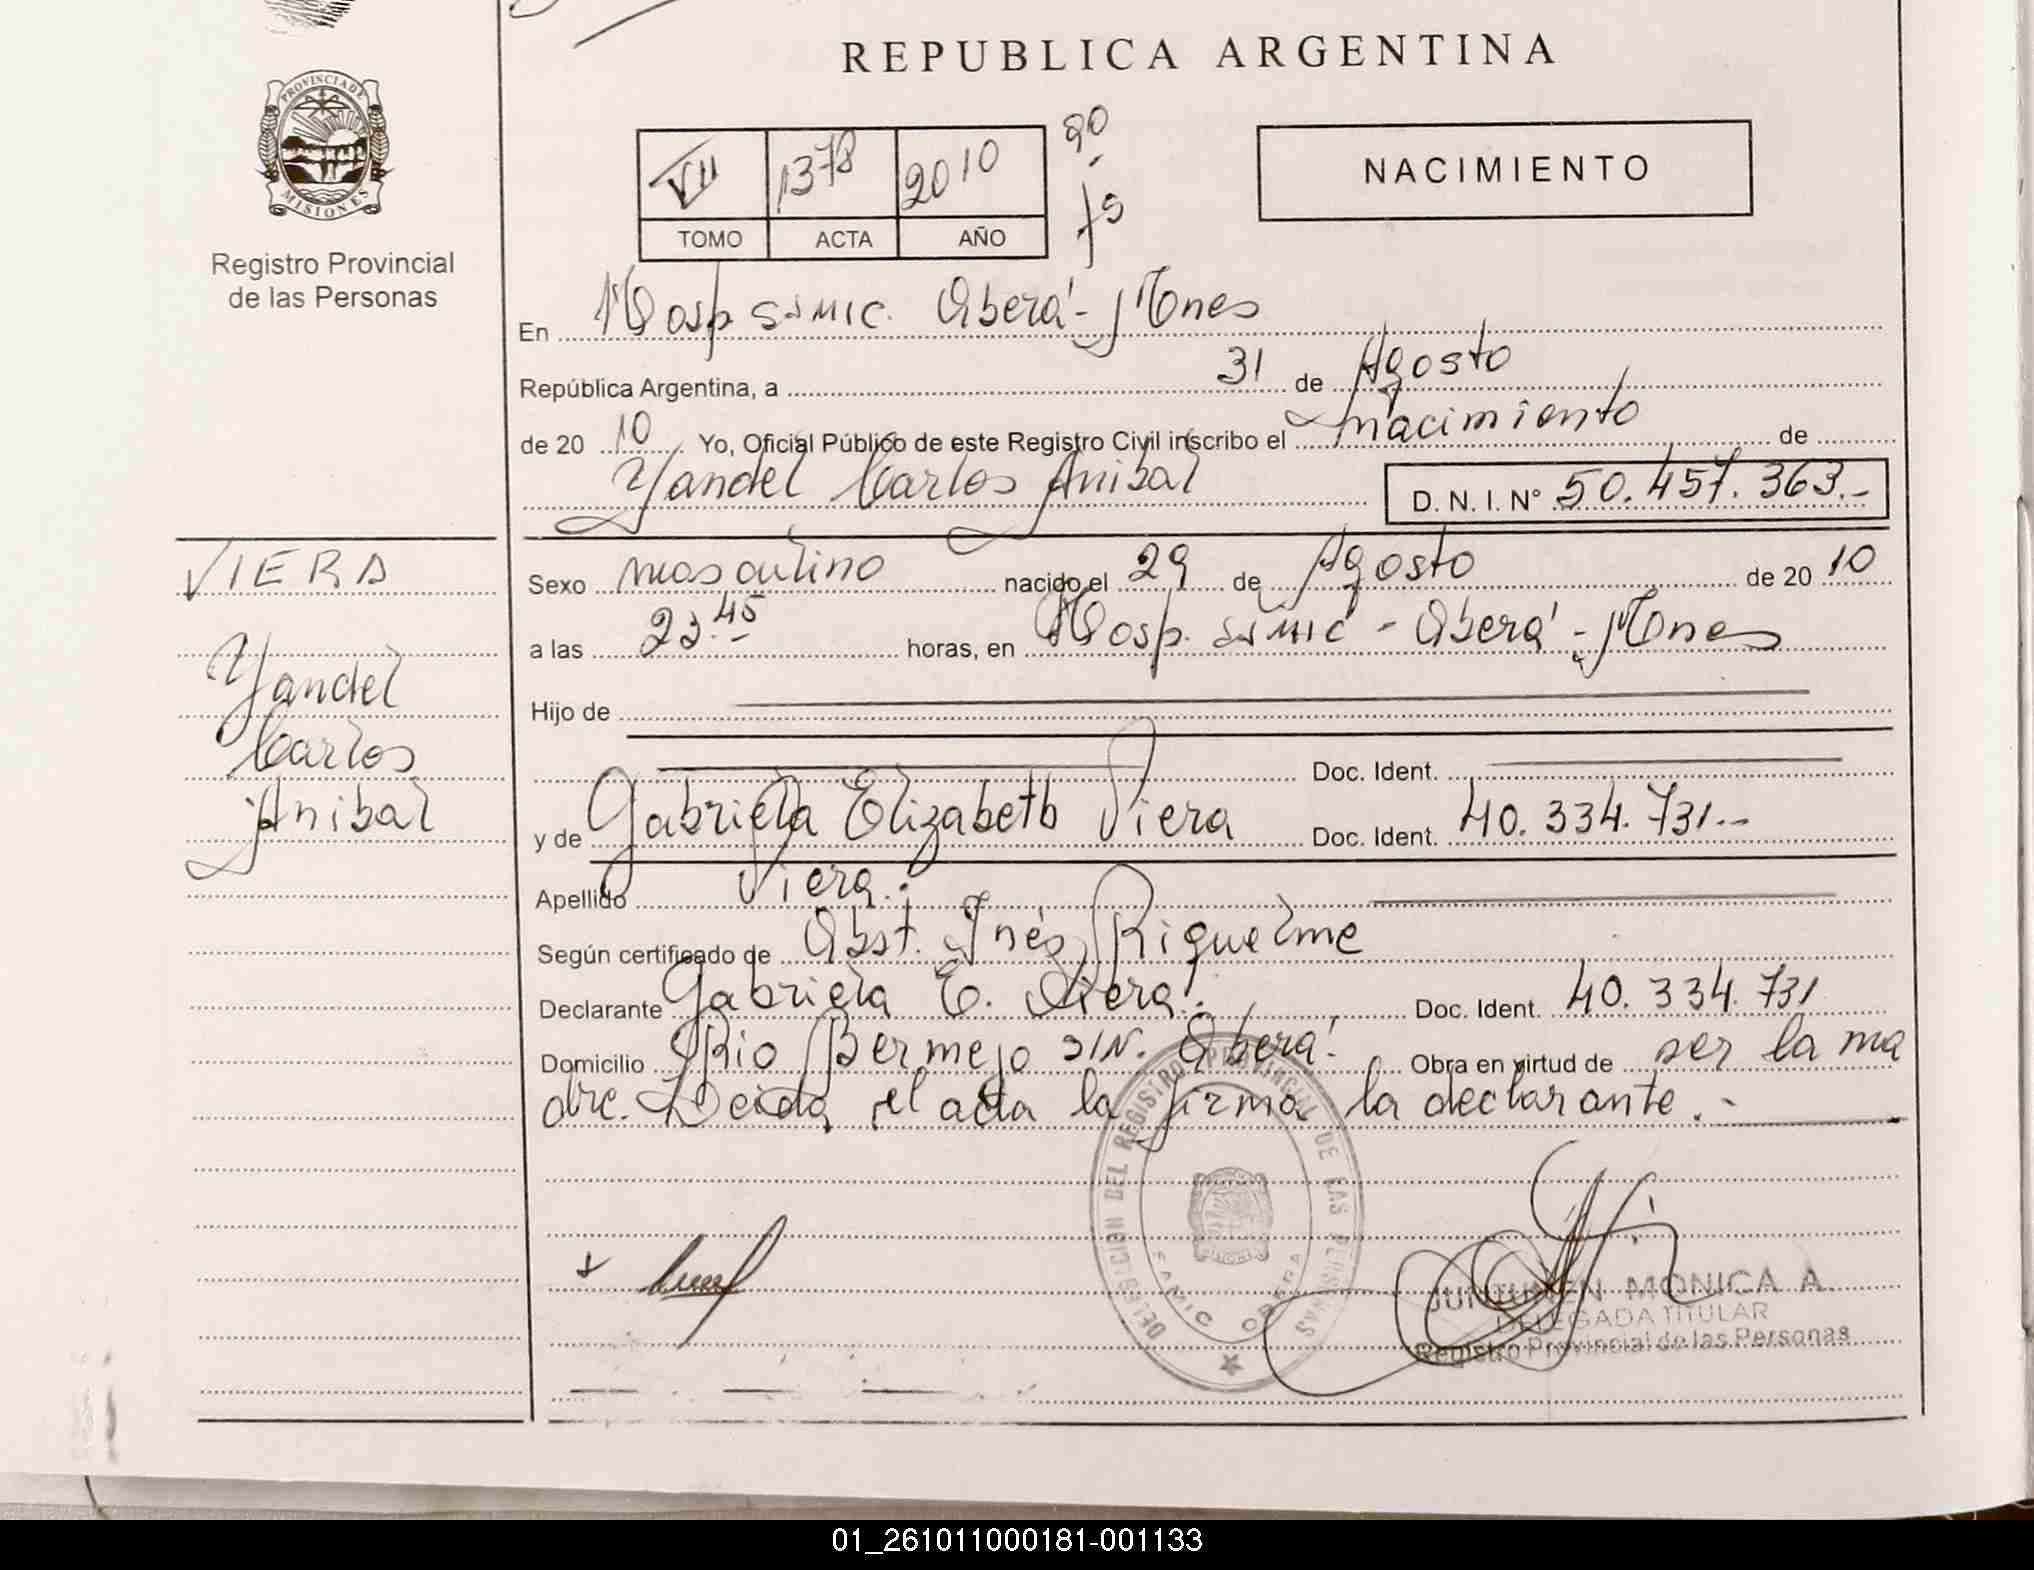 REPUBLICA ARGENTINA
PROVINCIA DE
MISIONES
Registro Provincial
de las Personas
VII 1378 2010
TOMO ACTA AÑO
90
fs
NACIMIENTO
En Hosp SAMIC. Oberá - Mnes
República Argentina, a 31 de Agosto
de 20 10 Yo, Oficial Público de este Registro Civil inscribo el nacimiento de
Yandel Carlos Anibal D. N. I. N° 50.457.363.-
VIERA
Yandel
Carlos
Anibal
Sexo masculino nacido el 29 de Agosto de 20 10
a las 23.45 horas, en Hosp. SAMIC - Oberá - Mnes
Hijo de
Doc. Ident.
y de Gabriela Elizabeth Viera Doc. Ident. 40.334.731.-
Apellido Viera.
Según certificado de Obst. Inés Riquelme
Declarante Gabriela E. Viera. Doc. Ident. 40.334.731
Domicilio Rio Bermejo S/N. Oberá. Obra en virtud de ser la ma
dre. Leida el acta la firma la declarante.-
DELEGACION DEL REGISTRO PROVINCIAL DE LAS PERSONAS
SAMIC OBERA
JUNTUNEN MONICA A.
DELEGADA TITULAR
Registro Provincial de las Personas
01_261011000181-001133